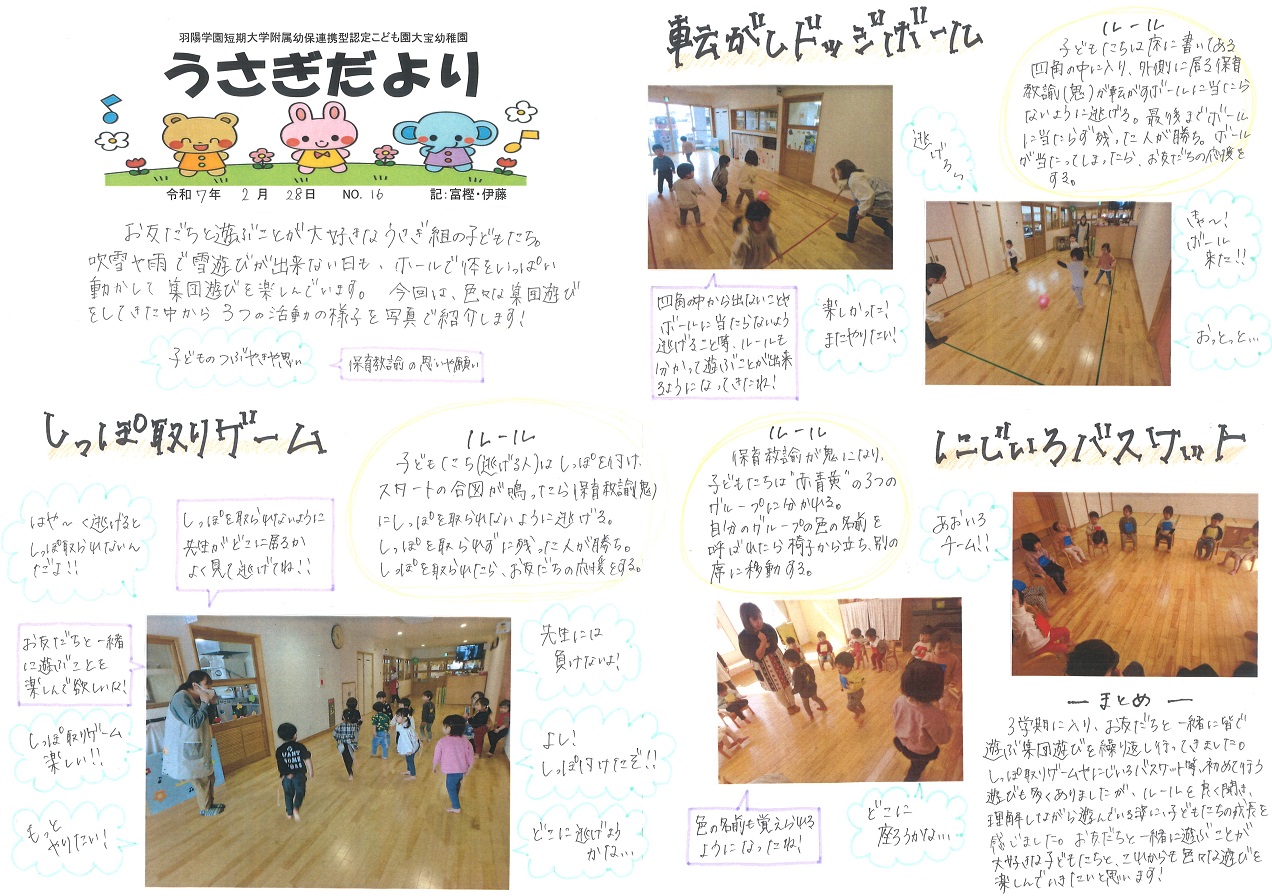 羽陽学園短期大学附属幼保連携型認定こども園大宝幼稚園
うさぎだより
令和7年 2月 28日 NO. 16 記:富樫・伊藤
お友だちと遊ぶことが大好きなうさぎ組の子どもたち。
吹雪や雨で雪遊びが出来ない日も、ホールで体をいっぱい
動かして集団遊びを楽しんでいます。 今回は、色々な集団遊び
をしてきた中から3つの活動の様子を写真で紹介します!
子どものつぶやきや思い
保育教諭の思いや願い
転がしドッジボール
ルール
子どもたちは床に書いてある
四角の中に入り、外側に居る保育
教諭(鬼)が転がすボールに当たら
ないように逃げる。最後までボール
に当たらず残った人が勝ち。ボール
が当たってしまったら、お友だちの応援を
する。
逃げろぃ
きゃ〜!
ボール
来た!!
おっとっと…
四角の中から出ないことや
ボールに当たらないよう
逃げること等、ルールも
分かって遊ぶことが出来
るようになってきたね!
楽しかった!
またやりたい!
しっぽ取りゲーム
ルール
子どもたち(逃げる人)はしっぽを付け、
スタートの合図が鳴ったら(保育教諭(鬼)
にしっぽを取られないように逃げる。
しっぽを取られずに残った人が勝ち。
しっぽを取られたら、お友だちの応援をする。
はや〜く逃げると
しっぽ取られないん
だよ!!
しっぽを取られないように
先生がどこに居るか
よく見て逃げてね!!
お友だちと一緒
に遊ぶことを
楽しんで欲しいな!
しっぽ取りゲーム
楽しい!!
もっと
やりたい!
先生には
負けないよ!
よし!
しっぽ付けたぞ!!
どこに逃げよう
かな…
にじいろバスケット
ルール
保育教諭が鬼になり、
子どもたちは“赤青黄”の3つの
グループに分かれる。
自分のグループの色の名前を
呼ばれたら椅子から立ち、別の
席に移動する。
あおいろ
チーム!!
色の名前も覚えられる
ようになったね!
どこに
座ろうかな…
ーまとめー
3学期に入り、お友だちと一緒に皆で
遊ぶ集団遊びを繰り返し行ってきました。
しっぽ取りゲームやにじいろバスケット等、初めて行う
遊びも多くありましたが、ルールを良く聞き、
理解しながら遊んでいる姿に、子どもたちの成長を
感じました。お友だちと一緒に遊ぶことが
大好きな子どもたちと、これからも色々な遊びを
楽しんでいきたいと思います!